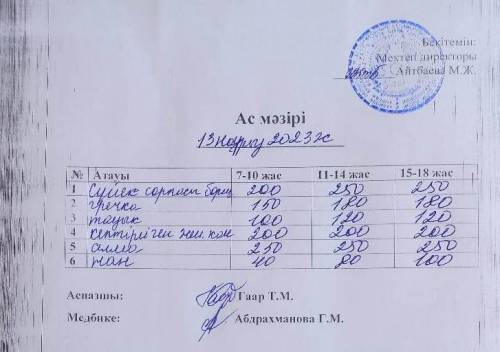 Бекітемін:
Мектеп директоры
Айтбаева М.Ж.
Ас мәзірі
13 наурыз 2023 ж
№ Атауы 7-10 жас 11-14 жас 15-18 жас
1 Сүйек сорпасы борщ 200 250 250
2 гречка 150 180 180
3 тауык 100 120 120
4 кептірілген жем. кон 200 200 200
5 алма 250 250 250
6 нан 40 80 100
Аспазшы: Гаар Т.М.
Медбике: Абдрахманова Г.М.